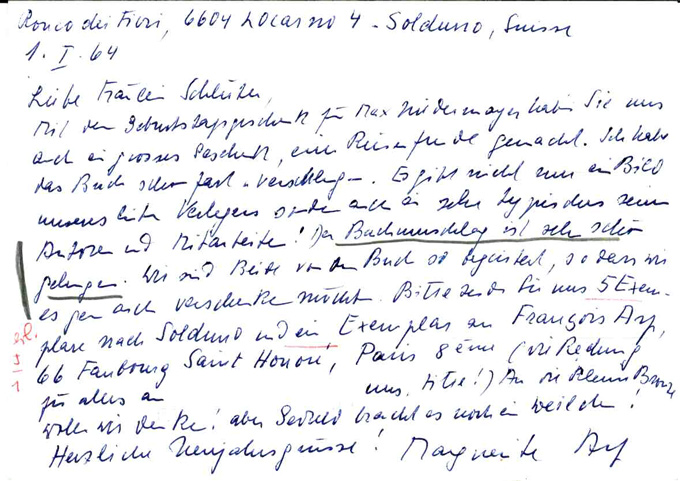 Ronco dei Fiori, 6604 Locarno 4 - Solduno, Suisse
1. I. 64
Liebe Fräulein Schlüter,
Mit dem Geburtstagsgeschenk für Max Niedermayer haben Sie uns
auch ein grosses Geschenk, eine Riesenfreude gemacht. Ich habe
das Buch schon fast "verschlungen". Es gibt nicht nur ein Bild
unseres lieben Verlegers sondern auch ein sehr typisches seiner
Autoren und Mitarbeiter! Der Buchumschlag ist sehr schön
gelungen. Wir sind Beide von dem Buch so begeistert, so dass wir
es gern auch verschenken möchten. Bitte senden Sie uns 5 Exem-
plare nach Solduno und ein Exemplar an François Arp,
66 Faubourg Saint Honoré, Paris 8ème (die Rechnung
für alles an uns, bitte!) An die kleine Bronze
wollen wir denken! aber Geduld braucht es noch ein weilchen!
Herzliche Neujahrsgrüsse! Marguerite Arp
5
1